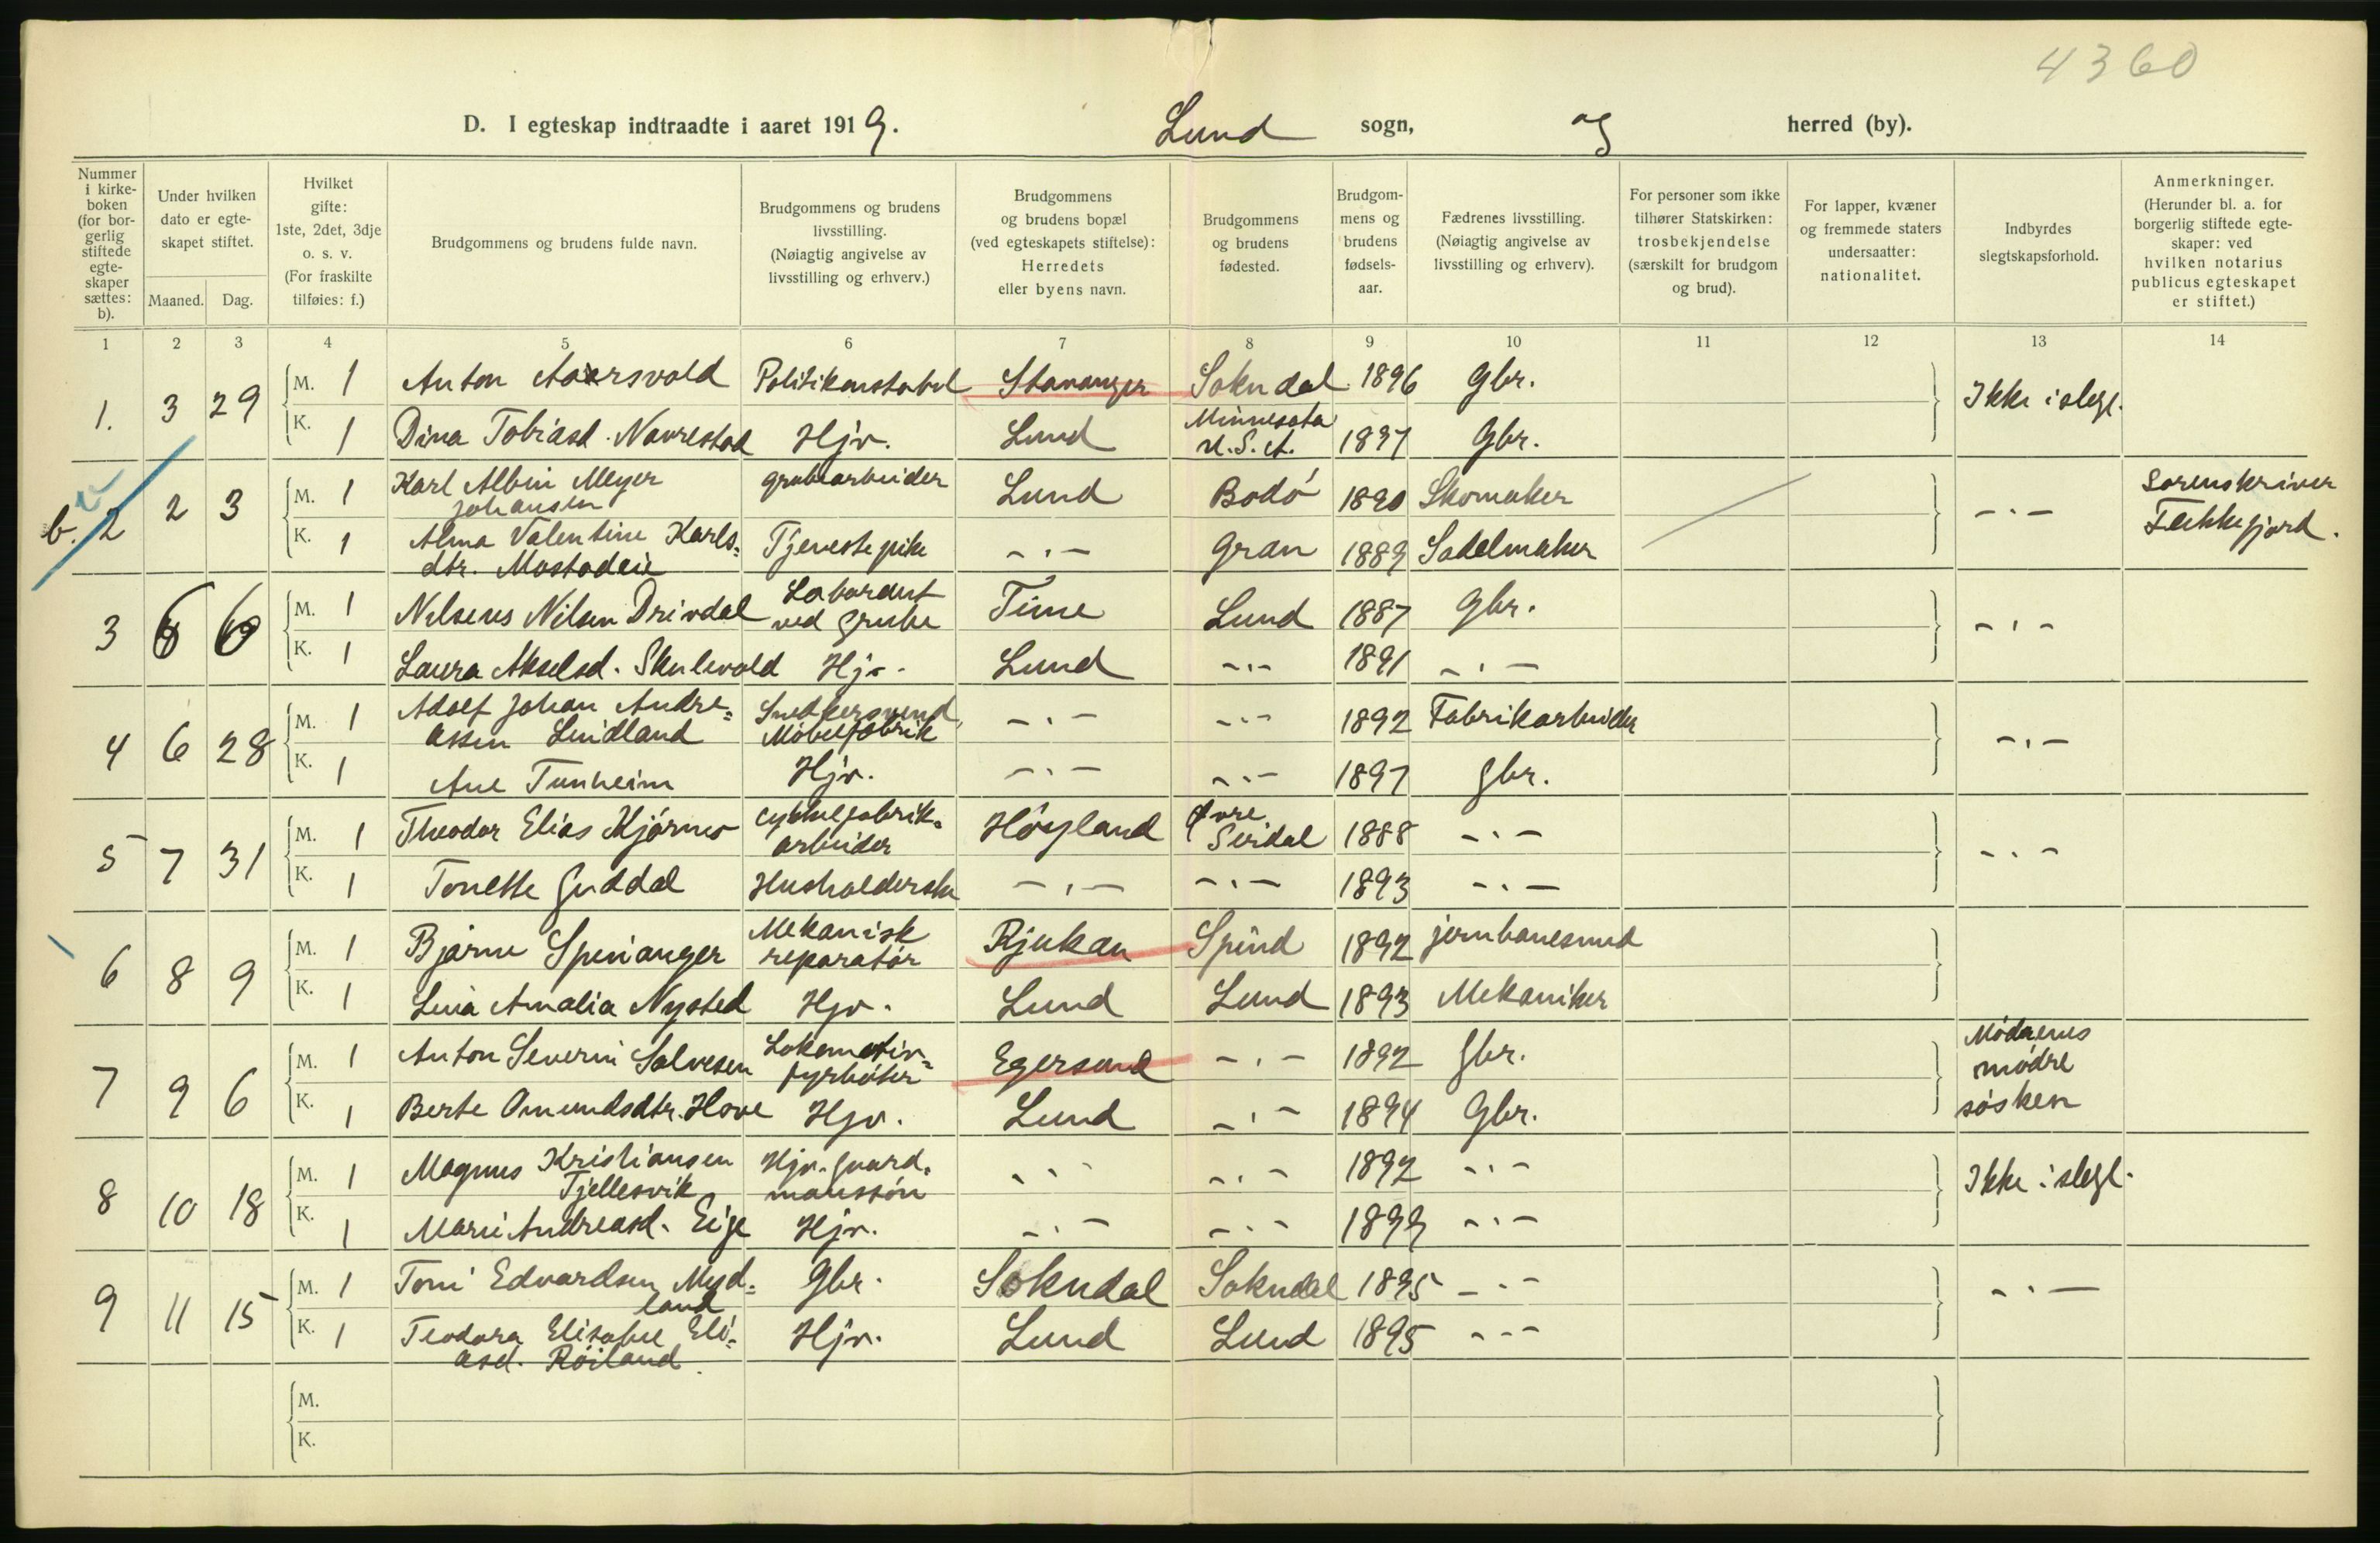 4360
D. I egteskap indtraadte i aaret 1919. Lund sogn, og herred (by).
Nummer i kirke-boken (for bor-gerlig stiftede egte-skaper sættes: b).
Under hvilken dato er egte-skapet stiftet.
Maaned. Dag.
Hvilket gifte: 1ste, 2det, 3dje o. s. v. (For fraskilte tilføies: f.)
Brudgommens og brudens fulde navn.
Brudgommens og brudens livsstilling. (Nøiagtig angivelse av livsstilling og erhverv.)
Brudgommens og brudens bopæl (ved egteskapets stiftelse): Herredets eller byens navn.
Brudgommens og brudens fødested.
Brudgom-mens og brudens fødsels-aar.
Fædrenes livsstilling. (Nøiagtig angivelse av livsstilling og erhverv).
For personer som ikke tilhører Statskirken: trosbekjendelse (særskilt for brudgom og brud).
For lapper, kvæner og fremmede staters undersaatter: nationalitet.
Indbyrdes slegtskapsforhold.
Anmerkninger. (Herunder bl. a. for borgerlig stiftede egte-skaper: ved hvilken notarius publicus egteskapet er stiftet.)
1 2 3 4 5 6 7 8 9 10 11 12 13 14
1. 3 29 M. 1 Anton Aarsvold Politikonstabel Stavanger Sokndal 1896 Gbr. Ikke i slegt.
K. 1 Dina Tobiasd. Navrestad Hjv. Lund Minnesota U.S.A. 1897 Gbr.
b. 2 2 3 M. 1 Karl Albin Meyer Johansen grubearbeider Lund Bodó 1890 Skomaker - . - Sorenskriver Flekkefjord.
K. 1 Alma Valentine Karls= dtr. Mostadeie Tjenestepike - . - Gran 1889 Sadelmaker
3 6 6 M. 1 Nilsenes Nilsen Drivdal Laborant ved Grube Time Lund 1887 Gbr. - . -
K. 1 Laura Akselsd. Skulevold Hjv. Lund - . - 1891 - . -
4 6 28 M. 1 Adolf Johan Andre= assen Lindland Snedkersvend, Möbelfabrik - . - - . - 1892 Fabrikarbeider - . -
K. 1 Ane Tunheim Hjv. - . - - . - 1897 Gbr.
5 7 31 M. 1 Theodor Elias Kjórnes cykkelfabrik- arbeider Höyland Øvre Sirdal 1888 - . - - . -
K. 1 Tonette Guddal Husholderske - . - - . - 1893 - . -
6 8 9 M. 1 Bjarne Spinanger Mekanisk reparatór Rjukan Spind 1892 jernbanesmed
K. 1 Lina Amalia Nysted Hjv. Lund Lund 1893 Mekaniker
7 9 6 M. 1 Anton Severin Salvesen Lokomotiv= fyrbóter Egersund - . - 1892 Gbr. Módrenes módre sósken
K. 1 Berte Omundsdtr. Hove Hjv. Lund - . - 1894 Gbr.
8 10 18 M. 1 Magnus Kristiansen Tjellesvik Hjv. Gaard- manssón - . - - . - 1892 - . - Ikke i slegt.
K. 1 Marie Andreasd. Eige Hjv. - . - - . - 1899 - . -
9 11 15 M. 1 Toni Edvardsen Myd= land Gbr. Sokndal Sokndal 1895 - . - - . -
K. 1 Teodora Elisabet Eli= asd. Róiland. Hjv. Lund Lund 1895 - . -
M.
K.